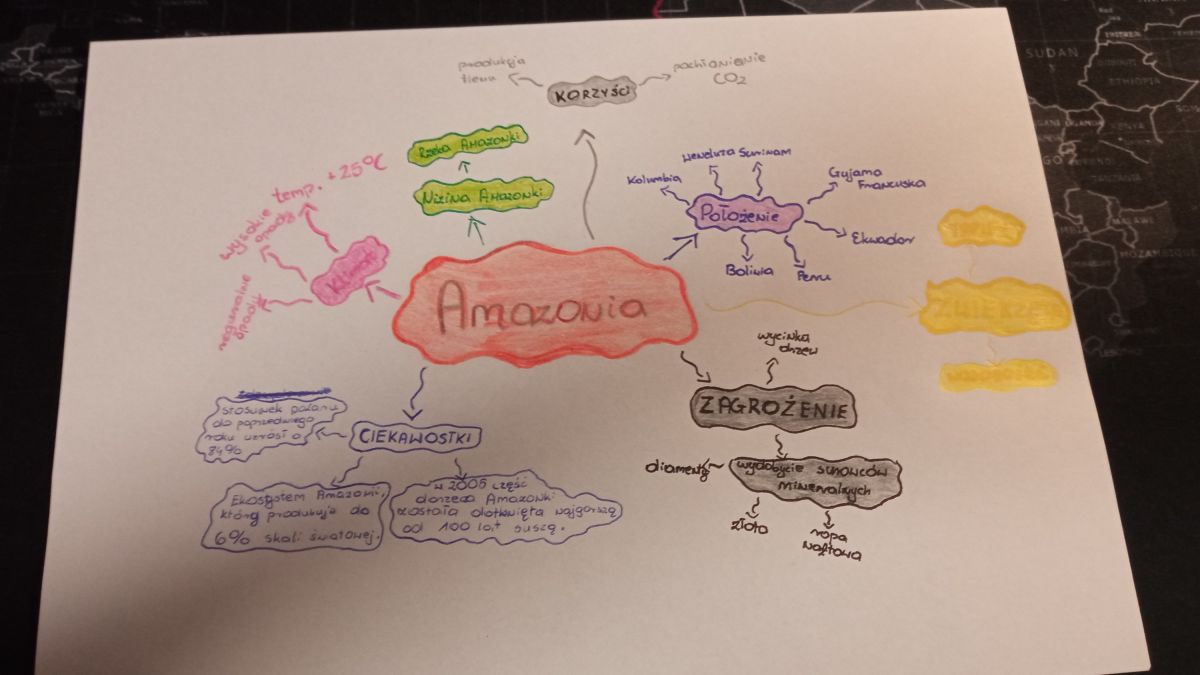 produkcja
tlenu
KORZYŚCI
pochłanienie
CO2
Rzeka Amazonki
Nizina Amazonki
temp. +25°C
wysokie
opady
regularne
opady
Klimat
Kolumbia
Weneluza
Surinam
Gujama
Francuska
Położenie
Ekwador
Boliwia
Peru
Amazonia
ZWIERZĘTA
wycinka
drzew
ZAGROŻENIE
wydobycie surowców
mineralnych
diamenty
złoto
ropa
naftowa
CIEKAWOSTKI
stosunek pożaru
do poprzedniego
roku wzrósł o
84%
Ekosystem Amazonii,
który produkuje do
6% skali światowej.
w 2005 część
dorzecza Amazonki
została dotknięta najgorszą
od 100 lat suszą.
SUDAN
ETHIOPIA
KENYA
TANZANIA
MALAWI
MOZAMBIQUE